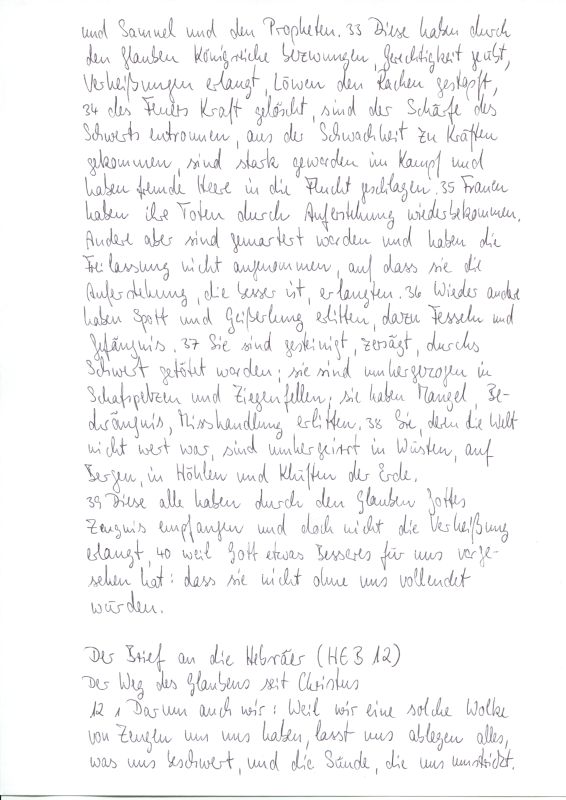 und Samuel und den Propheten. 33 Diese haben durch
den Glauben Königreiche bezwungen, Gerechtigkeit geübt,
Verheißungen erlangt, Löwen den Rachen gestopft,
34 des Feuers Kraft gelöscht, sind der Schärfe des
Schwerts entronnen, aus der Schwachheit zu Kräften
gekommen, sind stark geworden im Kampf und
haben fremde Heere in die Flucht geschlagen. 35 Frauen
haben ihre Toten durch Auferstehung wiederbekommen.
Andere aber sind gemartert worden und haben die
Freilassung nicht angenommen, auf dass sie die
Auferstehung, die besser ist, erlangten. 36 Wieder andere
haben Spott und Geißelung erlitten, dazu Fesseln und
Gefängnis. 37 Sie sind gesteinigt, zersägt, durchs
Schwert getötet worden; sie sind umhergezogen in
Schafspelzen und Ziegenfellen; sie haben Mangel, Be-
drängnis, Misshandlung erlitten. 38 Sie, deren die Welt
nicht wert war, sind umhergeirrt in Wüsten, auf
Bergen, in Höhlen und Klüften der Erde.
39 Diese alle haben durch den Glauben Gottes
Zeugnis empfangen und doch nicht die Verheißung
erlangt, 40 weil Gott etwas Besseres für uns vorge-
sehen hat: dass sie nicht ohne uns vollendet
würden.

Der Brief an die Hebräer (HEB 12)
Der Weg des Glaubens seit Christus
12 1 Darum auch wir: Weil wir eine solche Wolke
von Zeugen um uns haben, lasst uns ablegen alles,
was uns beschwert, und die Sünde, die uns umstrickt.